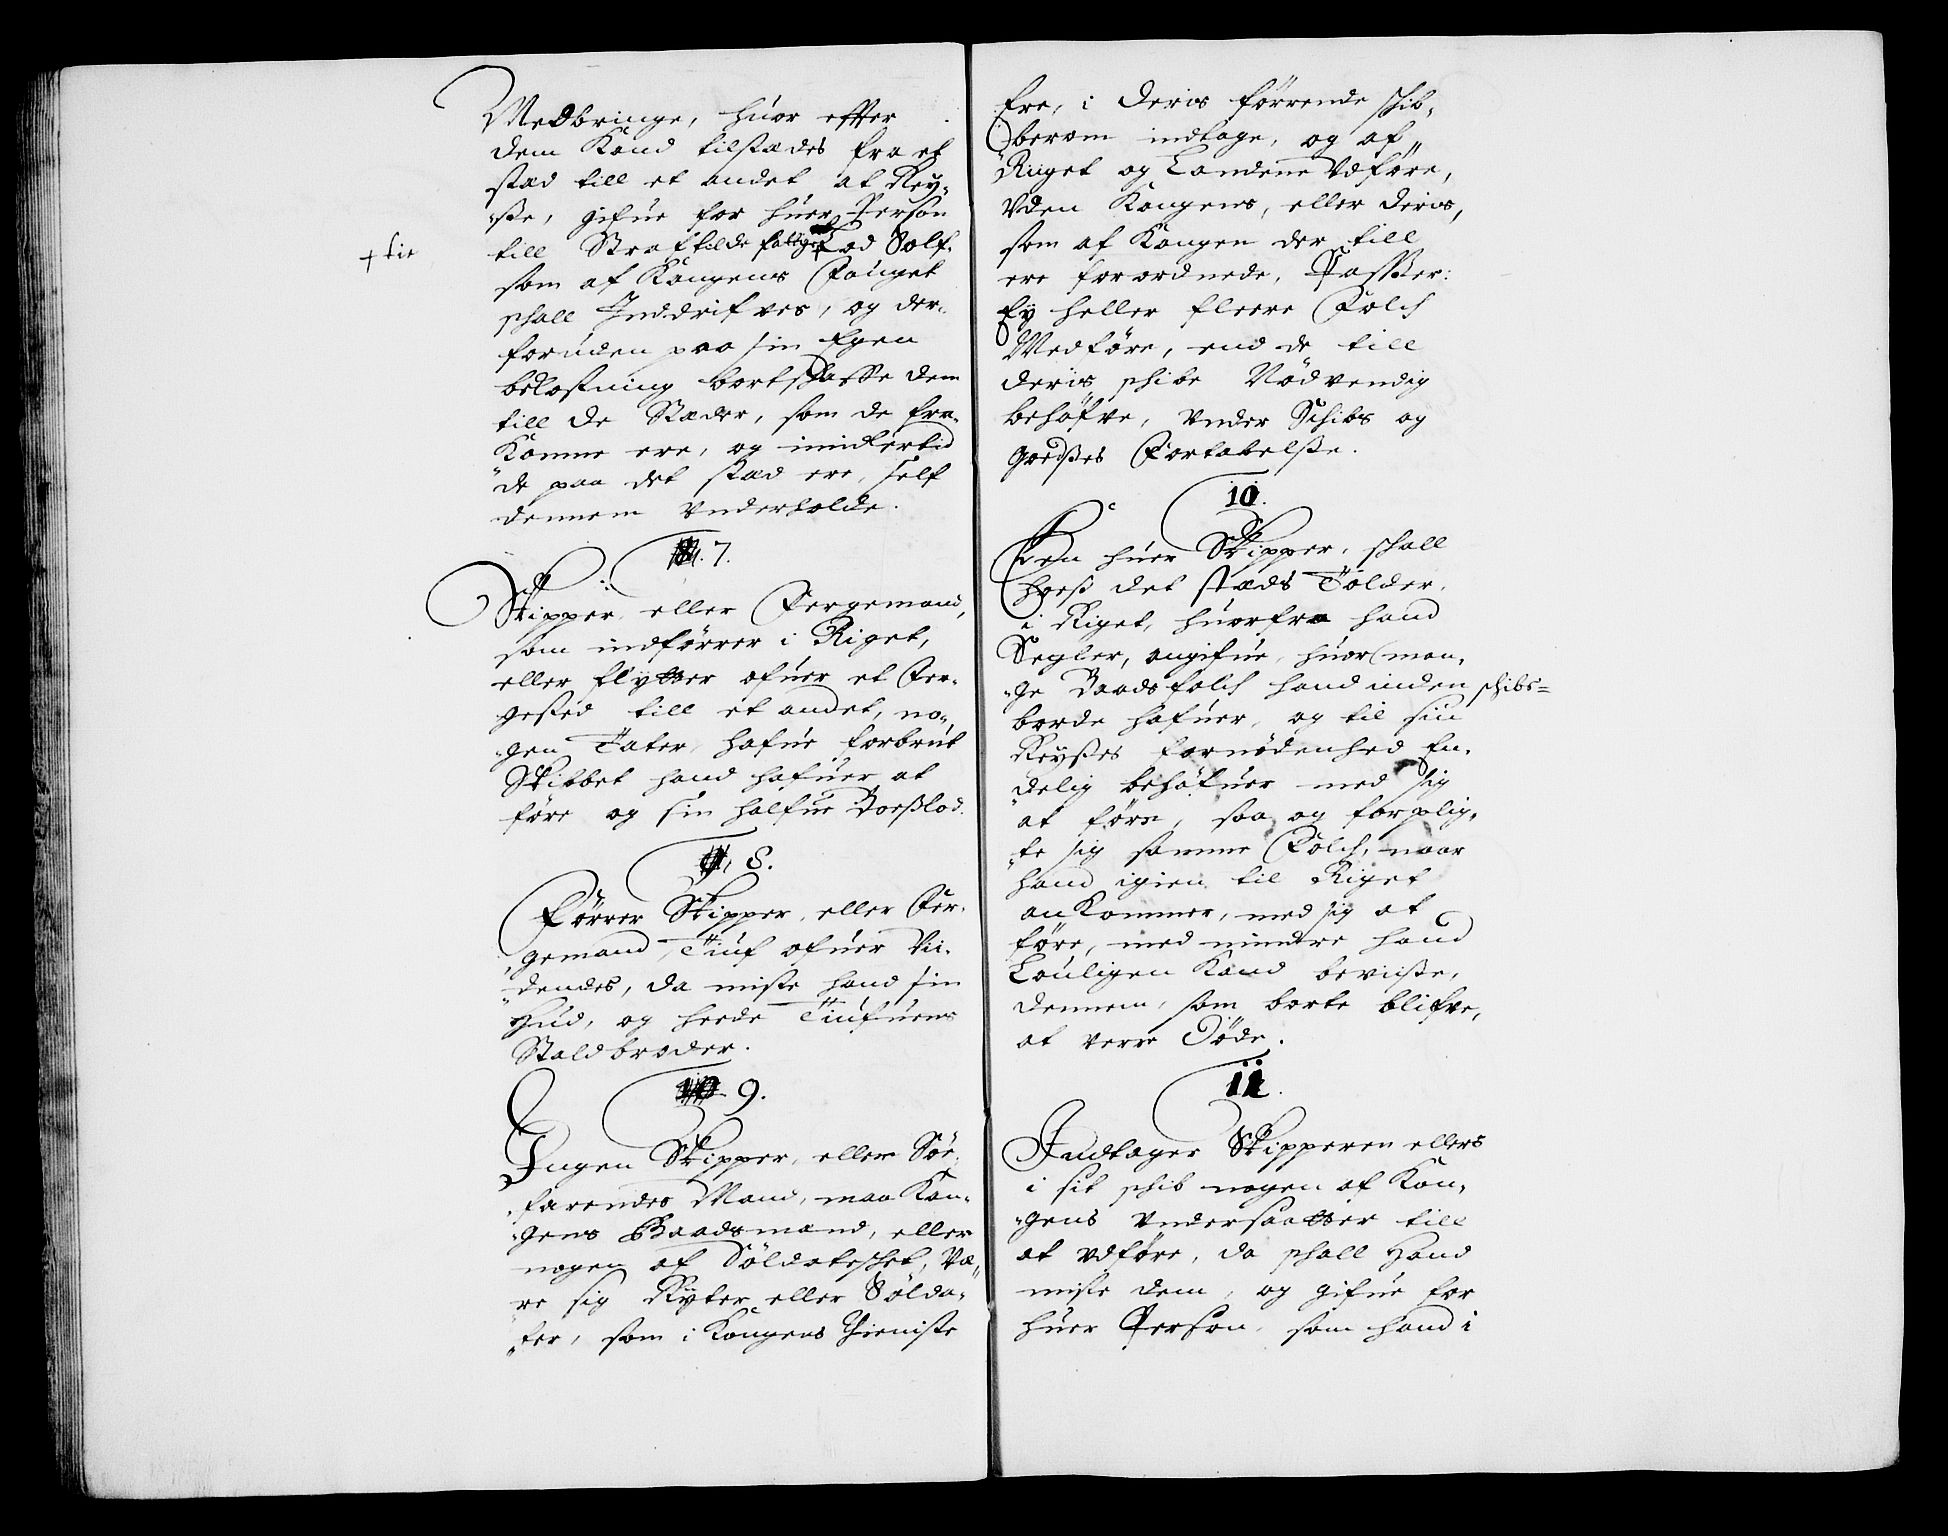 Medbringe, huor effter
dem Kand tilstædes fra et
stæd till et andet at Rey-
-ße, gifue for huer Person
till Straf tilde fattige Lod Sölf.
+ tie
som af Kongens Fouget
schall Inddrifves, og der-
foruden paa sin Egen
bekostning bortschaffe dem
till de Stæder, som de fra-
Komne ere, og imidlertid
de paa det stæd ere, self
dennem underholde.
7.
Skipper eller Fergemand,
som indförrer i Riget,
eller flytter ofuer et Fer-
-gested till et andet, no-
-gen Tater, hafue forbrut
Skibbet hand hafuer at
före og sin halfue Boeßlod.
8.
Förrer Skipper, eller Fer-
gemand, Tiuf ofuer Vii-
-dendes, da miste hand sin
Hud, og heede Tiufuens
Staldbroder.
9.
Ingen Skipper, eller Söe-
farendes Mand, maa Kon-
-gens Baadsmand, eller
nogen af Söldateschet, væ-
re sig Rytter eller Sölda-
ter, som i Kongens Thieniste
Ere, i deris förrende schib-
berom indtage, og af
Riiget og Landene Udföre,
Uden Kongens, eller deris,
som af Kongen der till
ere forordnede, Passer:
Ey heller fleere Folch
Medföre, end de till
deris schibe Nödvendig
behöfve, under Schibs og
goedßes Fortabelße.
10.
Een huer Skipper, schall
hoeß det stæds Tolder,
i Riget, huorfra hand
Segler, angifue, huor man-
-ge Baadsfolch hand inden schibs=
borde hafuer, og til sin
Reyßes fornödenhed En-
delig behöfuer med sig
at före, saa og forplig-
te sig samme Folch, naar
hand igien til Riget
anKommer, med sig at
före, med mindre hand
Louligen Kand beviiße,
dennem, som borte blifve,
at verre Döde.
11.
Indtager Skipperen ellers
i sit schib nogen af Kon-
-gens Undersaatter till
at udföre, da schall Hand
miste dem, og gifue for
huer Person, som hand i